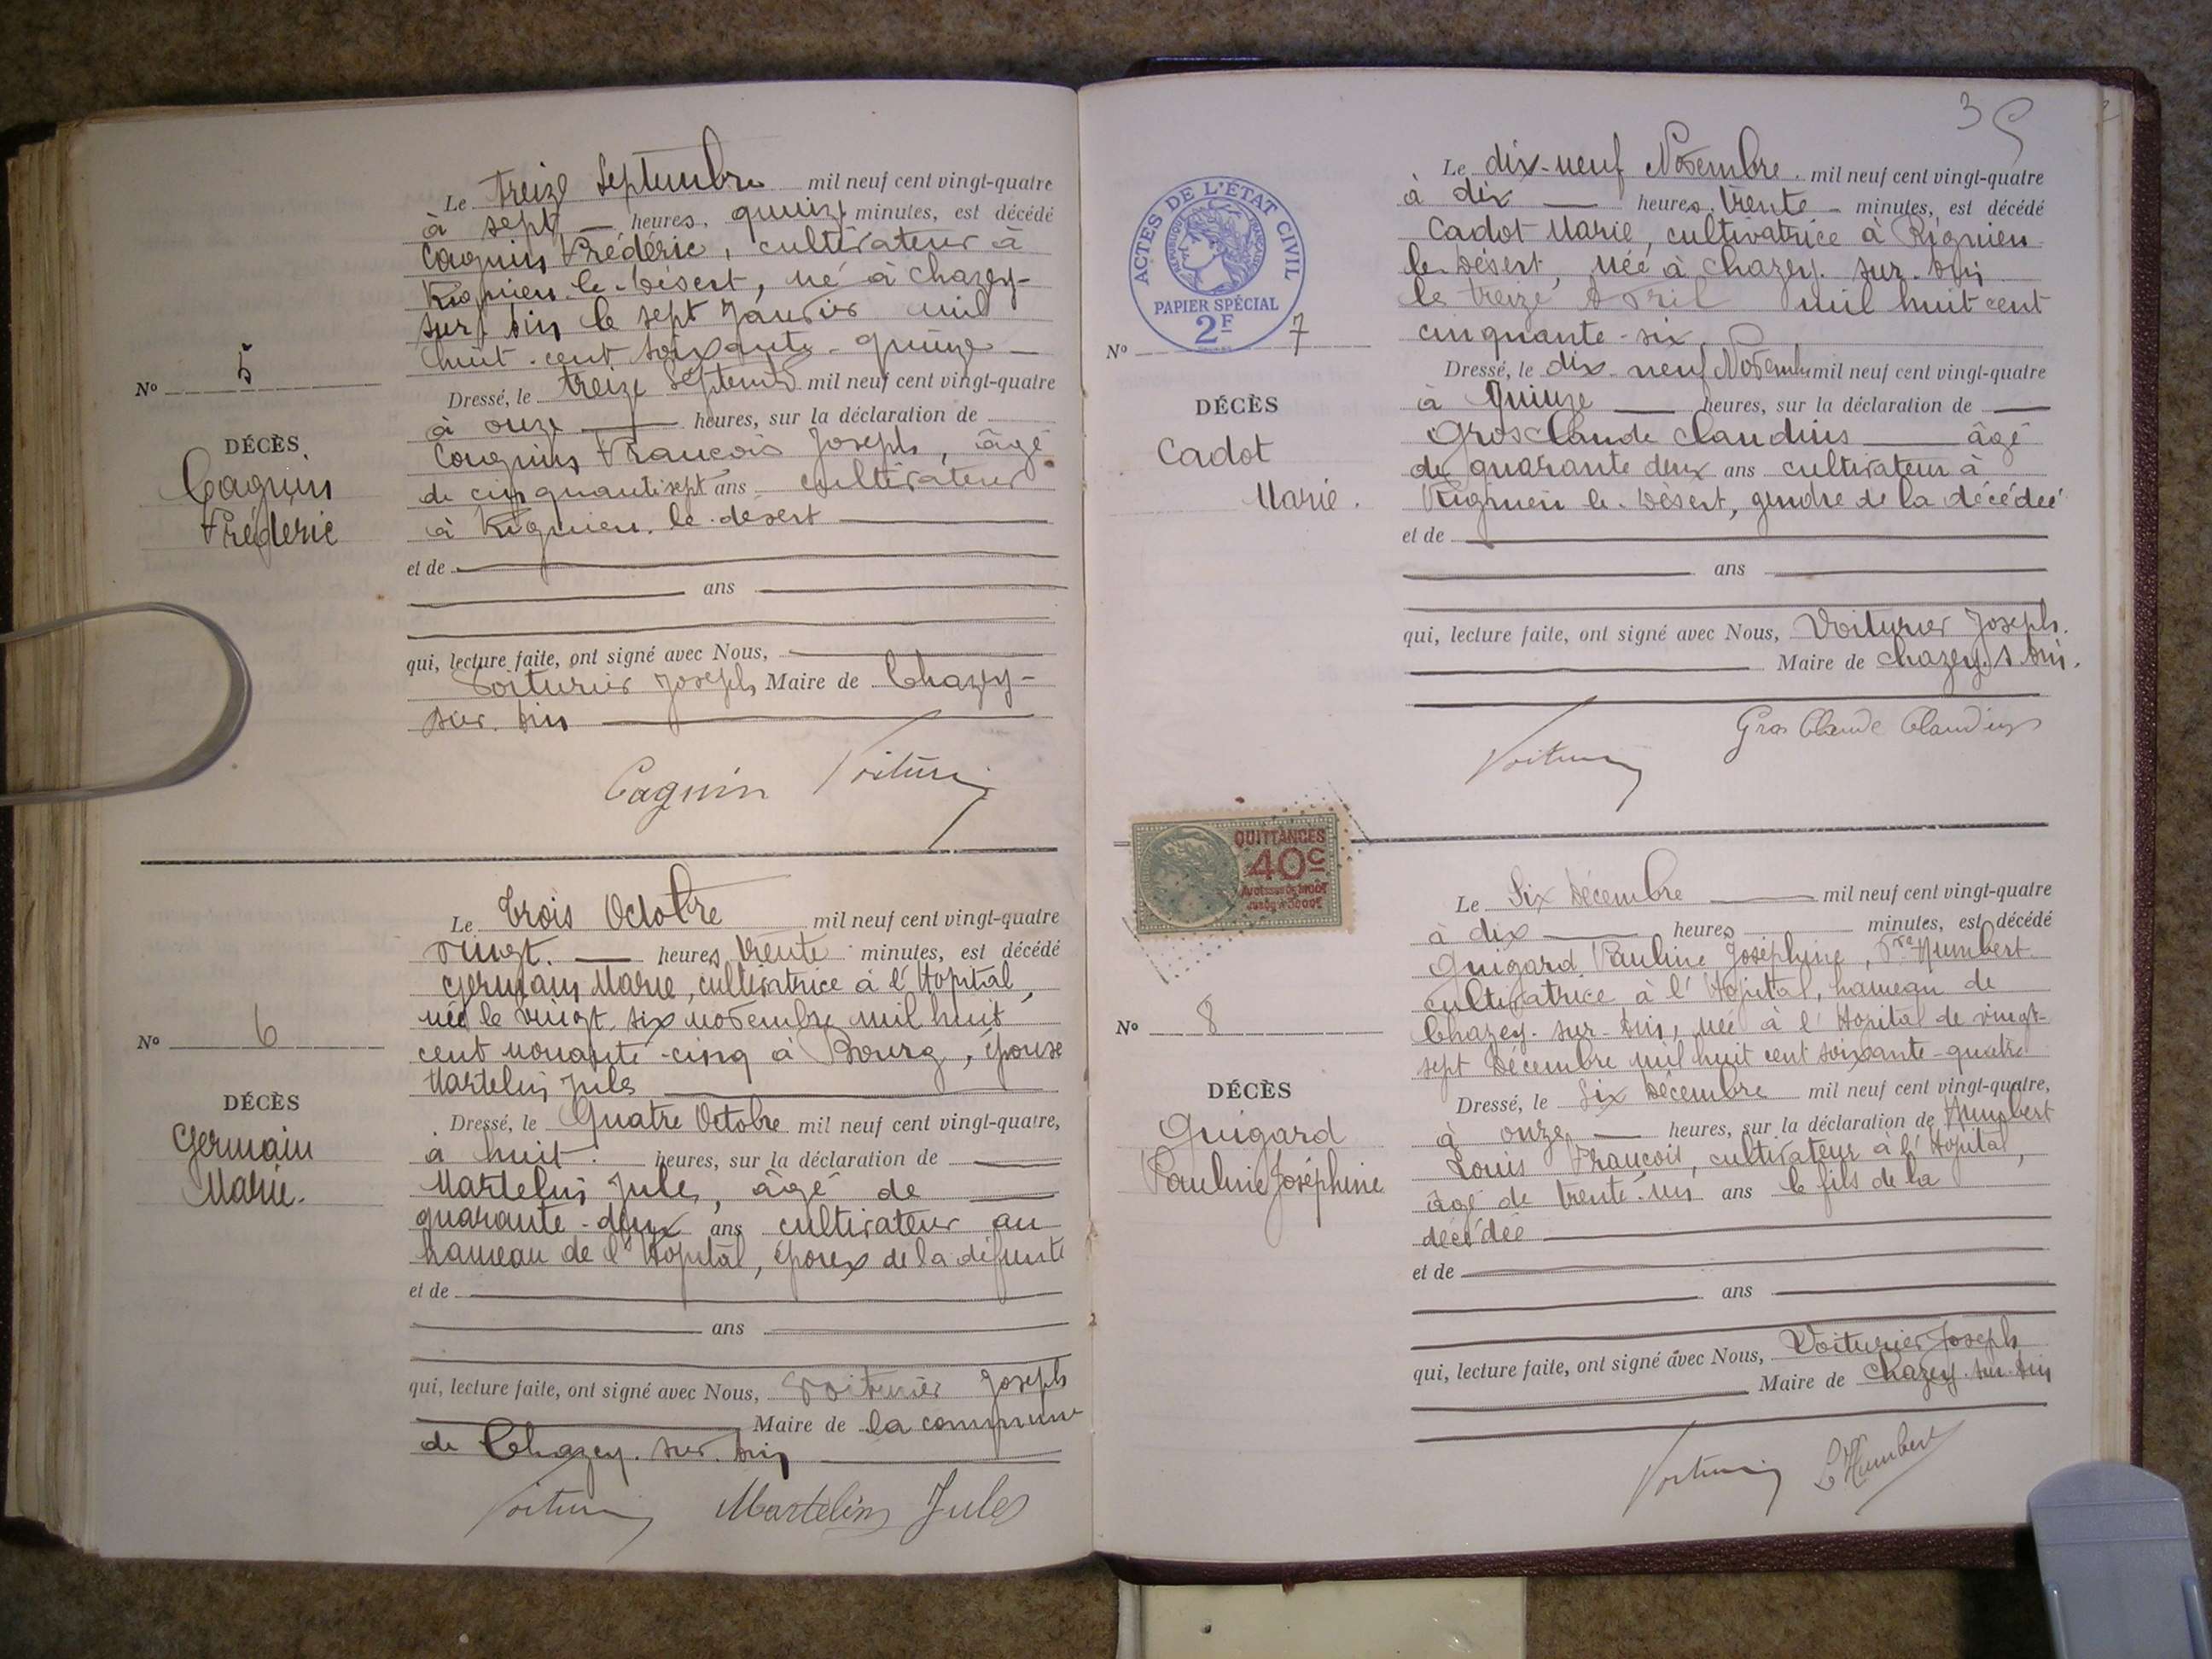 Le treize Septembre mil neuf cent vingt-quatre
à sept heures, quinze minutes, est décédé
Coguin Frédéric, cultivateur à
Rignieu-le-Désert, né à Chazey-
sur-Ain le sept Janvier mil
huit-cent soixante-quinze
Dressé, le treize Septemb mil neuf cent vingt-quatre
à onze heures, sur la déclaration de
Coguin François Joseph, âgé
de cinquante sept ans cultivateur
à Rignieu-le-désert
et de
ans
qui, lecture faite, ont signé avec Nous,
Voiturier Joseph, Maire de Chazey-
sur-Ain
Caguin Voiturier
No 5
DÉCÈS
Caguin
Fréderic
Le trois Octobre mil neuf cent vingt-quatre
vingt heures trente minutes, est décédé
Germain Marie, cultivatrice à l'Hopital,
née le vingt-six novembre mil huit
cent nonante-cinq à Bourg, épouse
Martelin Jules
Dressé, le Quatre Octobre mil neuf cent vingt-quatre,
à huit heures, sur la déclaration de
Martelin Jules, âgé de
quarante-deux ans cultivateur au
hameau de l'Hopital, époux de la défunte
et de
ans
qui, lecture faite, ont signé avec Nous, Voiturier Joseph
Maire de la commune
de Chazey-sur-Ain
Voiturier Martelin Jules
No 6
DÉCÈS
Germain
Marie.
35
ACTES DE L'ÉTAT CIVIL
RÉPUBLIQUE FRANÇAISE
PAPIER SPÉCIAL
2F
No 7
DÉCÈS
Cadot
Marie.
Le dix-neuf Novembre mil neuf cent vingt-quatre
à dix heures trente minutes, est décédé
Cadot Marie, cultivatrice à Rignieu
le-Désert, née à Chazey-sur-Ain
le treize Avril mil huit cent
cinquante-six
Dressé, le dix-neuf Novembre mil neuf cent vingt-quatre
à Quinze heures, sur la déclaration de
Grosclaude Claudius âgé
de quarante deux ans cultivateur à
Rignieu le-Désert, gendre de la décédée
et de
ans
qui, lecture faite, ont signé avec Nous, Voiturier Joseph.
Maire de Chazey s Ain.
Voiturier Gros Claude Claudius
QUITTANCES
40c
No 8
DÉCÈS
Guigard
Pauline Joséphine
Le Six Décembre mil neuf cent vingt-quatre
à dix heures minutes, est décédé
Guigard Pauline Joséphine, Vve Humbert
cultivatrice à l'Hopital, hameau de
Chazey-sur-Ain, née à l'Hopital de vingt-
sept Décembre mil huit cent soixante-quatre
Dressé, le Six Décembre mil neuf cent vingt-quatre,
à onze heures, sur la déclaration de Humbert
Louis François, cultivateur à l'Hopital,
âgé de trente-un ans le fils de la
décédée
et de
ans
qui, lecture faite, ont signé avec Nous, Voiturier Joseph
Maire de Chazey-sur-Ain
Voiturier L Humbert